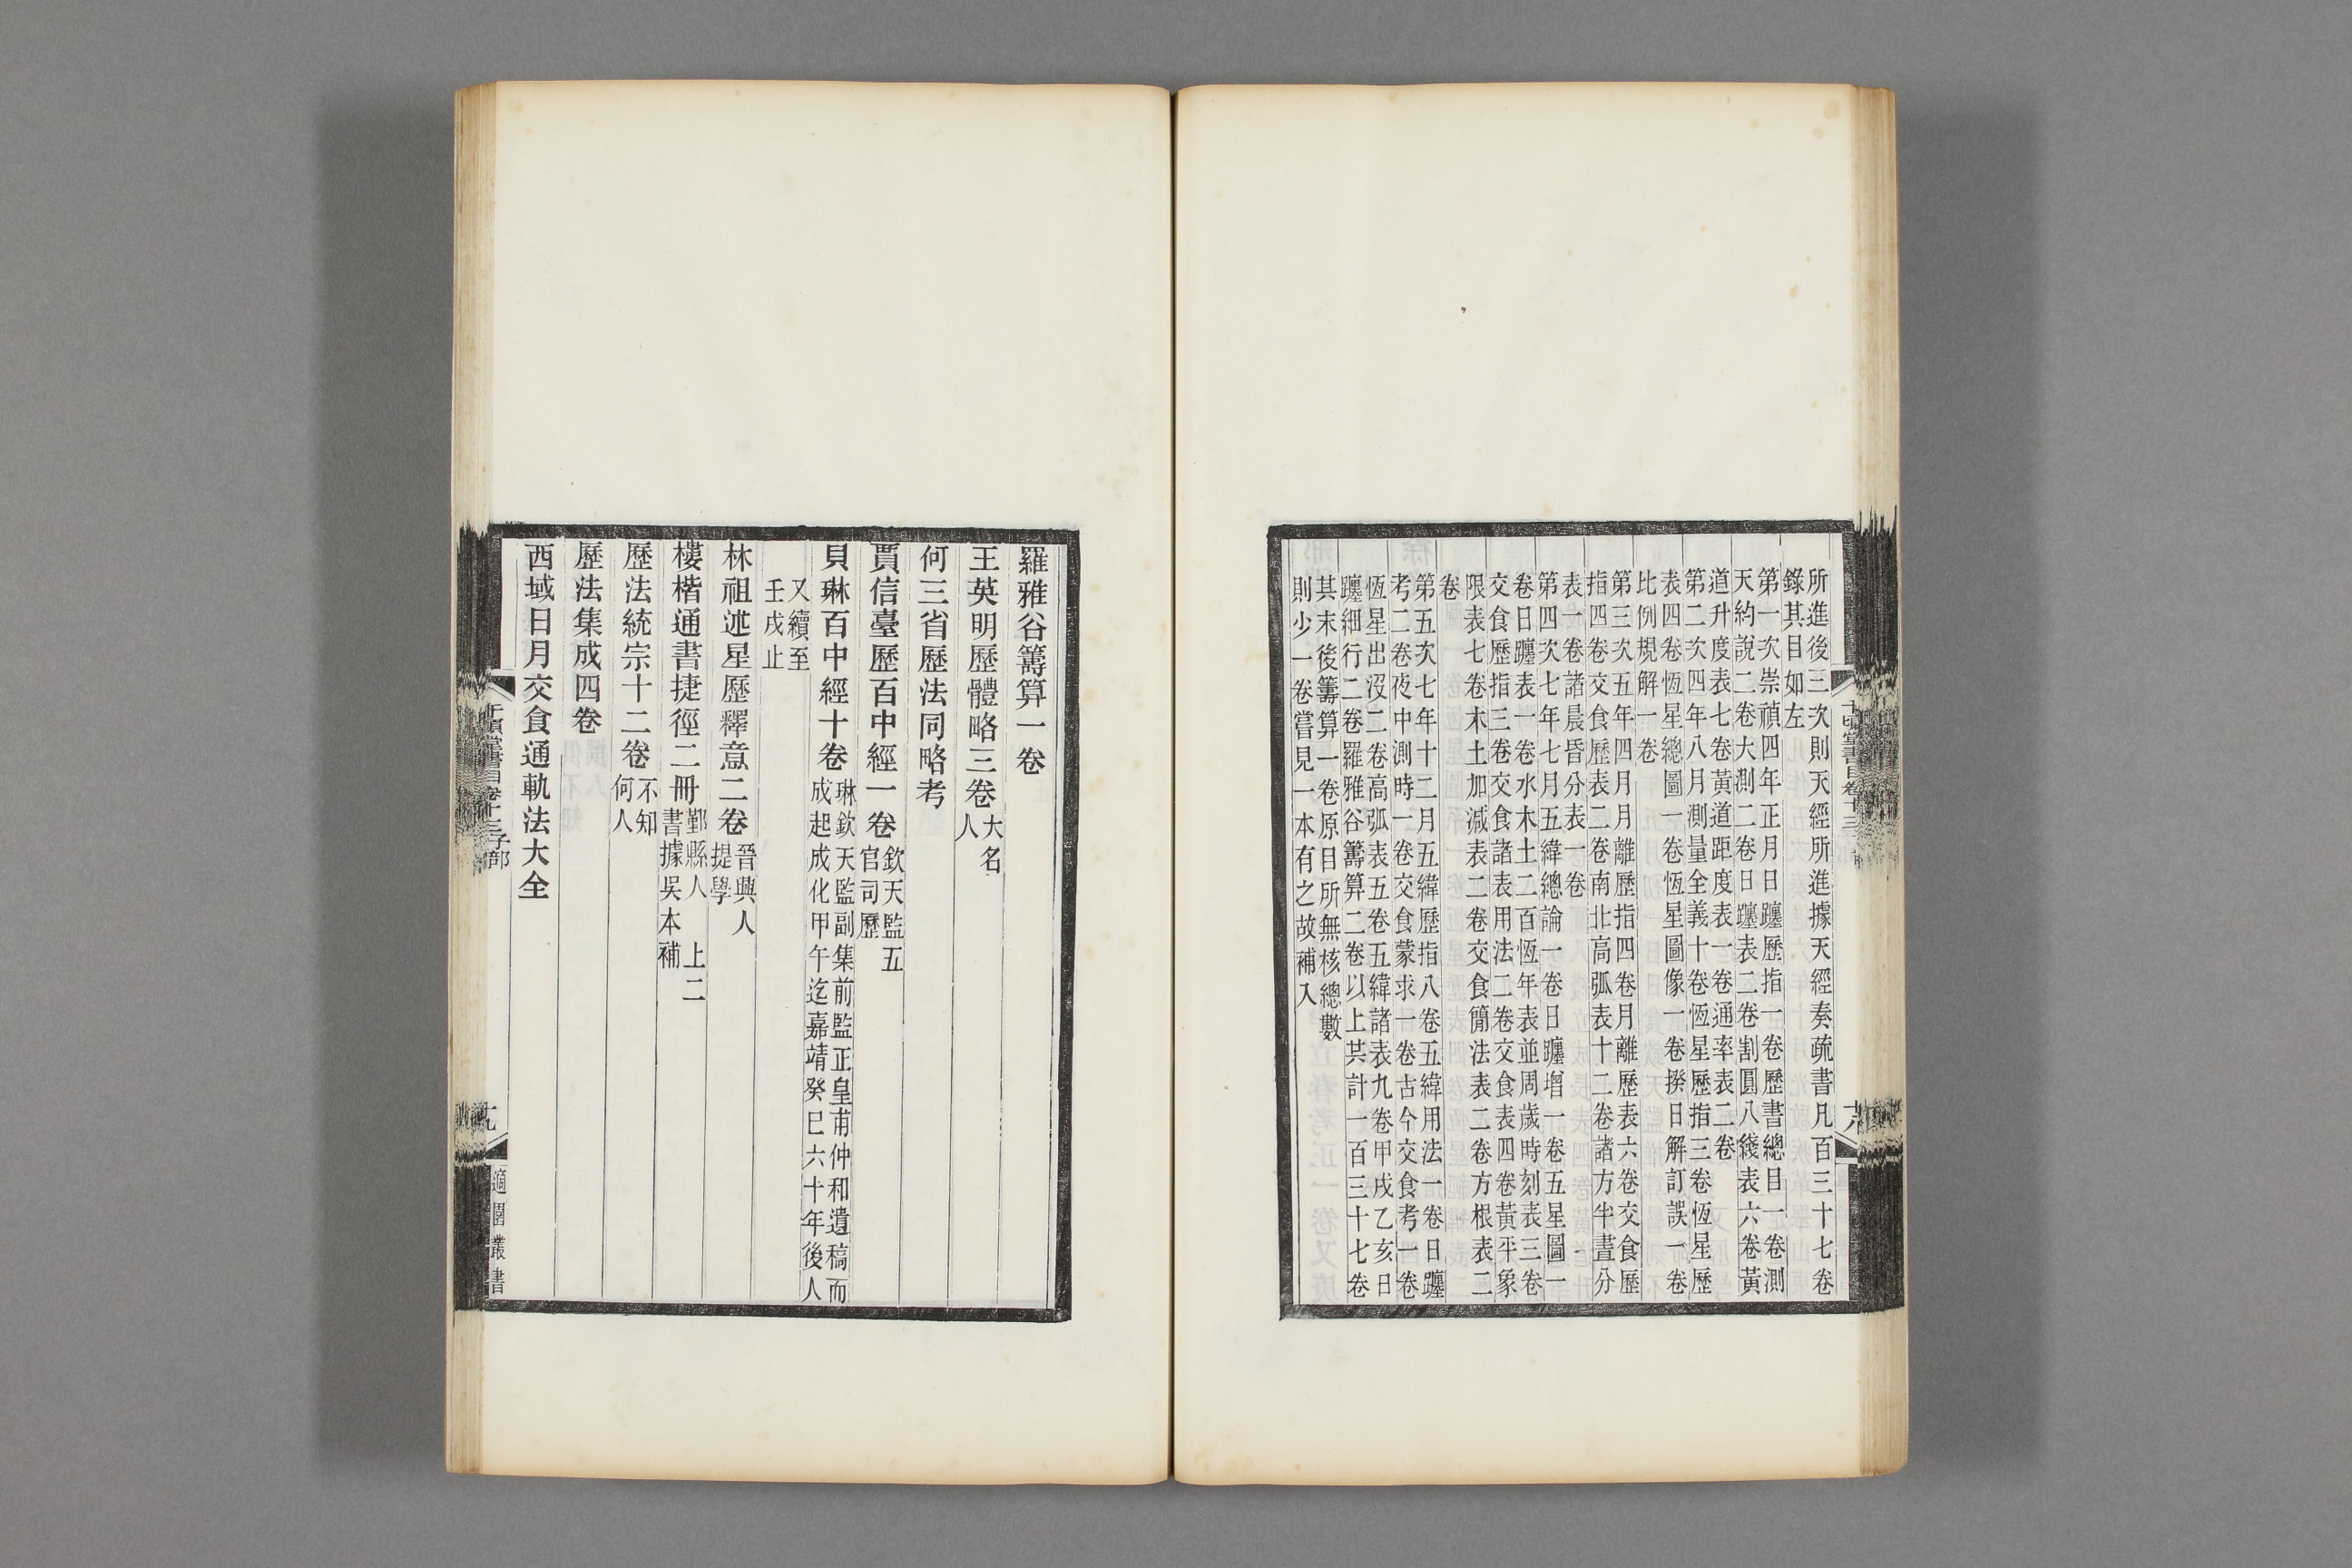 所進後三次則天經所進據天經奏疏書凡百三十七卷
錄其目如左
第一次崇禎四年正月日躔歷指一卷歷書總目一卷測
天約說二卷大測二卷日躔表二卷割圓八綫表六卷黃
道升度表七卷黃道距度表一卷通率表二卷
第二次四年八月測量全義十卷恆星歷指三卷恆星歷
表四卷恆星總圖一卷恆星圖像一卷揆日解訂誤一卷
比例規解一卷
第三次五年四月月離歷指四卷月離歷表六卷交食歷
指四卷交食歷表二卷南北高弧表十二卷諸方半晝分
表一卷諸晨昏分表一卷
第四次七年七月五緯總論一卷日躔增一卷五星圖一
卷日躔表一卷水木土二百恆年表並周歲時刻表三卷
交食歷指三卷交食諸表用法二卷交食表四卷黃平象
限表七卷木土加減表二卷交食簡法表二卷方根表二
卷
第五次七年十二月五緯歷指八卷五緯用法一卷日躔
考二卷夜中測時一卷交食蒙求一卷古今交食考一卷
恆星出沒二卷高弧表五卷五緯諸表九卷甲戌乙亥日
躔細行二卷羅雅谷籌算二卷以上共計一百三十七卷
其末後籌算一卷原目所無核總數
則少一卷嘗見一本有之故補入
羅雅谷籌算一卷
王英明歷體略三卷大名
人
何三省歷法同略考
賈信臺歷百中經一卷欽天監五
官司歷
貝琳百中經十卷琳欽天監副集前監正皇甫仲和遺稿而
成起成化甲午迄嘉靖癸巳六十年後人
又續至
壬戌止
林祖述星歷釋意二卷晉興人
提學
樓楷通書捷徑二冊鄞縣人 上二
書據吳本補
歷法統宗十二卷不知
何人
歷法集成四卷
西域日月交食通軌法大全
十九
適園叢書